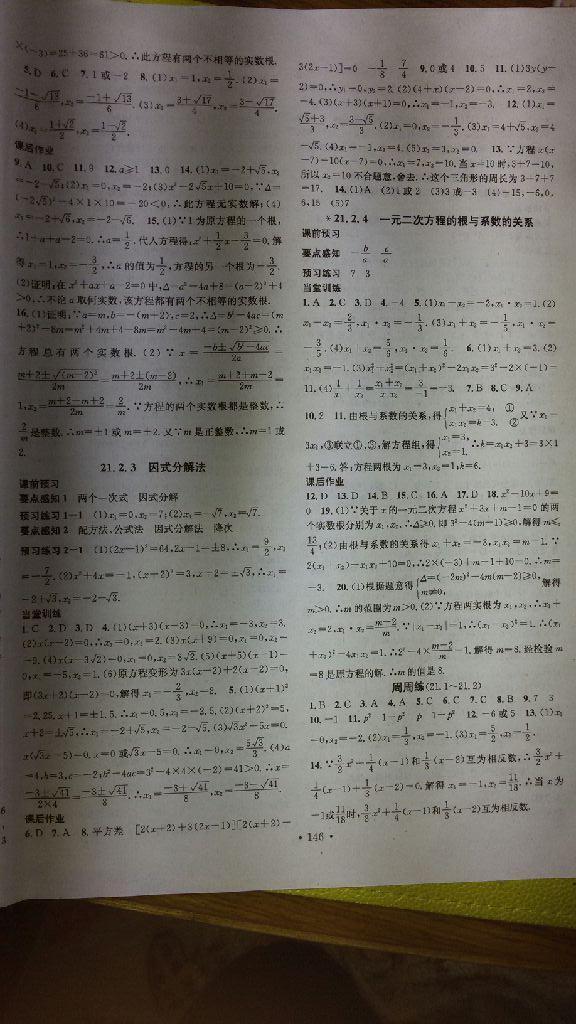 ×(-3)=25+36=61>0.∴此方程有两个不相等的实数根.
5.D 6.C 7.1或-2 8.(1)x₁=1,x₂=1/2.(2)x₁=
(-1-√13)/6,x₂=(-1+√13)/6.(3)x₁=(3+√17)/4,x₂=(3-√17)/4.
(4)x₁=(1+√2)/2,x₂=(1-√2)/2.
课后作业
9.A 10.C 11.9 12.a≥1 13.0 14.(1)x₁=-2+√5,x₂
=-2-√5;(2)x₁=0,x₂=-2;(3)x²-2√5x+10=0,∵Δ=
(-2√5)²-4×1×10=-20<0,∴此方程无实数解;(4)
x₁=-2+√6,x₂=-2-√6. 15.(1)∵1为原方程的一个根,
∴1+a+a-2=0.∴a=1/2.代入方程得,x²+1/2x-3/2=0.解
得x₁=1,x₂=-3/2,∴a的值为1/2,方程的另一个根为-3/2.
(2)证明:在x²+ax+a-2=0中,Δ=a²-4a+8=(a-2)²+4
>0,∴不论a取何实数,该方程都有两个不相等的实数根.
16.(1)证明:∵a=m,b=-(m+2),c=2,∴Δ=b²-4ac=(m
+2)²-8m=m²+4m+4-8m=m²-4m+4=(m-2)²≥0.∴
方程总有两个实数根.(2)∵x=(-b±√(b²-4ac))/2a=
(m+2±√(m-2)²)/2m=(m+2±(m-2))/2m,∴x₁=(m+2+m-2)/2m=
1,x₂=(m+2-m+2)/2m=2/m.∵方程的两个实数根都是整数,∴
2/m是整数.∴m=±1或m=±2.又∵m是正整数,∴m=1或
2.
21.2.3 因式分解法
课前预习
要点感知1 两个一次式 因式分解
预习练习1-1 (1)x₁=0,x₂=7;(2)x₁=-√7,x₂=√7.
要点感知2 配方法,公式法 因式分解法 降次
预习练习2-1 (1)(2x-1)²=64,2x-1=±8,∴x₁=9/2,x₂
=-7/2.(2)x²+4x=-1,(x+2)²=3,x+2=±√3,∴x₁=
-2+√3,x₂=-2-√3.
当堂训练
1.C 2.D 3.D 4.(1)(x+3)(x-3)=0,∴x₁=-3,x₂=3.
(2)x(x-2)=0,∴x₁=0,x₂=2.(3)x(x+9)=0,x₁=0,x₂=
-9.(4)x(x-3√2)=0,x₁=0,x₂=3√2.(5)(x+5)(x-1)=
0,x₁=-5,x₂=1.(6)原方程变形为3x(x-2)+2(x-2)=0,
即(3x+2)(x-2)=0,解得x₁=-2/3,x₂=2. 5.(1)(x+1)²
=2.25,x+1=±1.5,∴x₁=0.5,x₂=-2.5.(2)(x+2)²=5,
x+2=±√5,∴x₁=-2+√5,x₂=-2-√5.(3)√3x²-5x=0.
x(√3x-5)=0.x=0或√3x-5=0.∴x₁=0,x₂=5√3/3.(4)a
=4,b=3,c=-2,b²-4ac=3²-4×4×(-2)=41>0.∴x=
(-3±√41)/(2×4)=(-3±√41)/8.∴x₁=(-3+√41)/8,x₂=(-3-√41)/8.
课后作业
6.D 7.A 8.平方差 [2(x+2)+3(2x-1)][2(x+2)-
3(2x-1)]=0 -1/8 7/4 9.0或4 10.5 11.(1)3y(y-
2)=0,∴y₁=0,y₂=2.(2)(4+x)(x-2)=0.∴x₁=2,x₂=
-4.(3)(x+3)(x+1)=0,∴x₁=-1,x₂=-3. 12.(1)x₁=
(√5+3)/3,x₂=(3-√5)/3.(2)x₁=0,x₂=-1/3.(3)x₁=4+√5,x₂=4
-√5.(4)x₁=-1,x₂=4.(5)x₁=3,x₂=0. 13.∵方程x(x
-7)-10(x-7)=0,∴x₁=7,x₂=10.当x=10时,3+7=10,
所以x₂=10不合题意,舍去.∴这个三角形的周长为3+7+7
=17. 14.(1)A (2)1或2 (3)3或-3 (4)±15,±6,0,
6,15 (5)7
*21.2.4 一元二次方程的根与系数的关系
课前预习
要点感知 -b/a c/a
预习练习 7 3
当堂训练
1.A 2.C 3.D 4.-4 5.(1)x₁+x₂=-3,x₁·x₂=1.(2)
x₁+x₂=2/3,x₁·x₂=-1/3.(3)x₁+x₂=-1/5,x₁·x₂=
-3/5.(4)x₁+x₂=5/6,x₁·x₂=1/6. 6.(1)x₁+x₂=3.(2)
x₁x₂=-1.(3)x₁²+x₂²=(x₁+x₂)²-2x₁x₂=3²-2×(-1)=
11.(4)1/x₁+1/x₂=(x₁+x₂)/x₁x₂=3/-1=-3. 7.B 8.C 9.A
10.2 11.由根与系数的关系,得{x₁+x₂=4, ① x₁x₂=k-3. ② 又∵x₁=
3x₂,③联立①,③,解方程组,得{x₁=3, x₂=1. ∴k=x₁x₂+3=3×1
+3=6.答:方程两根为x₁=3,x₂=1;k=6.
课后作业
12.D 13.D 14.B 15.C 16.A 17.D 18.x²-10x+9=
0 19.(1)∵关于x的一元二次方程x²+3x+m-1=0的两
个实数根分别为x₁,x₂,∴Δ≥0,即3²-4(m-1)≥0,解得m≤
13/4;(2)由根与系数的关系得x₁+x₂=-3,x₁x₂=m-1.∵
2(x₁+x₂)+x₁x₂+10=0,∴2×(-3)+m-1+10=0.∴m=
-3. 20.(1)根据题意得{Δ=(-2m)²-4m(m-2)≥0, m≠0, 解得
m>0.∴m的范围为m>0.(2)∵方程两实根为x₁,x₂,∴x₁+
x₂=2,x₁·x₂=(m-2)/m.∵|x₁-x₂|=1,∴(x₁-x₂)²=1.∴(x₁
+x₂)²-4x₁x₂=1.∴2²-4×(m-2)/m=1.解得m=8.经检验m
=8是原方程的解.∴m的值是8.
周周练(21.1~21.2)
1.B 2.C 3.A 4.A 5.C 6.C 7.C 8.B 9.7 3
10.-1 11.p² 1-p² p 1-p² 12.-6或5 13.(1)x₁
=0,x₂=-2.(2)x₁=1/3,x₂=-1.(3)x₁=5/2,x₂=1/2.
14.∵3/2x²+1/4(x-1)和1/3(x-2)互为相反数,∴3/2x²+
1/4(x-1)+1/3(x-2)=0.解得x₁=-1,x₂=11/18.∴当x为
-1或11/18时,3/2x²+1/4(x-1)和1/3(x-2)互为相反数.
·146·